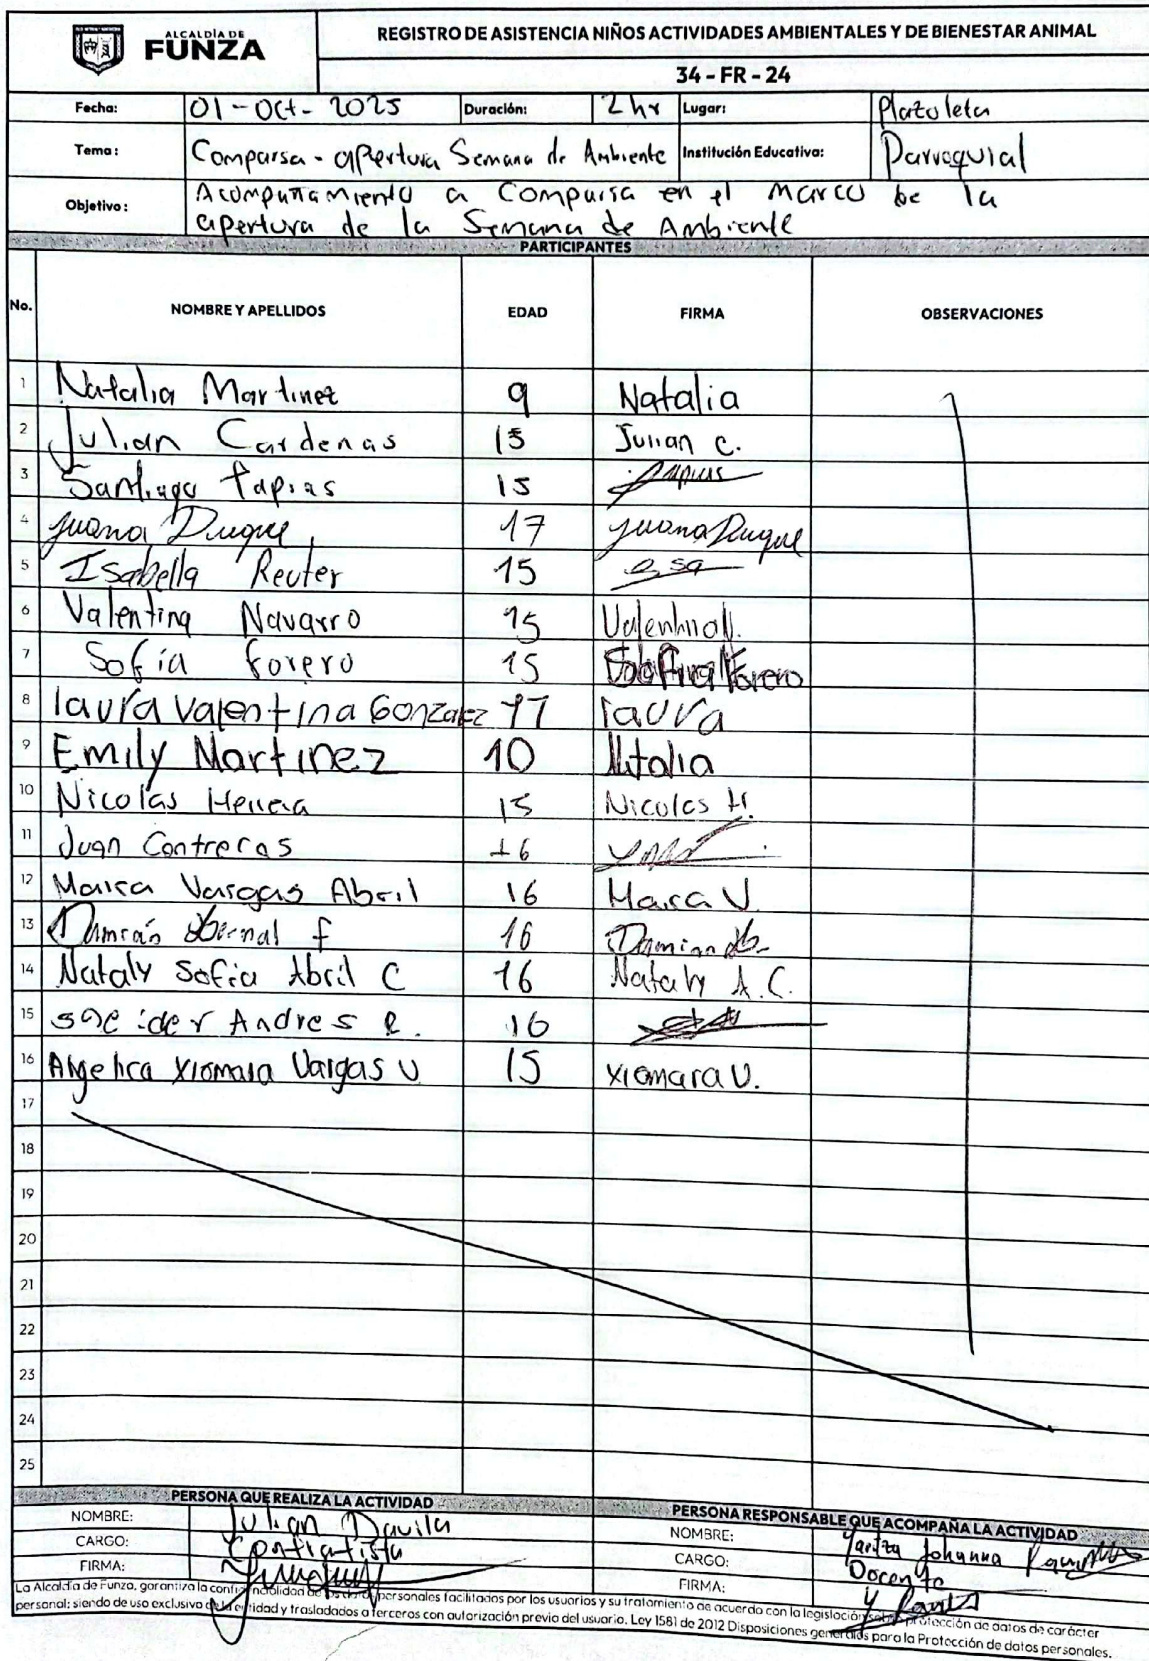 ALCALDÍA DE
FUNZA
REGISTRO DE ASISTENCIA NIÑOS ACTIVIDADES AMBIENTALES Y DE BIENESTAR ANIMAL
34 - FR - 24
Fecha: 01-Oct-2025 Duración: 2 hr Lugar: Plazoleta
Tema: Comparsa - apertura Semana de Ambiente Institución Educativa: Parroquial
Objetivo: Acompañamiento a Comparsa en el marco de la
apertura de la Semana de Ambiente
PARTICIPANTES
No. NOMBRE Y APELLIDOS EDAD FIRMA OBSERVACIONES
1 Natalia Martinez 9 Natalia
2 Julian Cardenas 15 Julian C.
3 Santiago Tapias 15
4 Juana Duque 17 Juana Duque
5 Isabella Reuter 15
6 Valentina Navarro 15 Valentina N.
7 Sofía Forero 15 Forero
8 laura Valentina Gonzalez 17 laura
9 Emily Martinez 10 Natalia
10 Nicolas Herrera 15 Nicolas H.
11 Juan Contreras 16
12 Vargas Abril 16 V
13 Damián Bernal f 16 Damian B.
14 Nataly Sofia Abril C 16 Nataly A.C.
15 Andres R. 16
16 Angelica Xiomara Vargas V 15 Xiomara V.
17
18
19
20
21
22
23
24
25
PERSONA QUE REALIZA LA ACTIVIDAD PERSONA RESPONSABLE QUE ACOMPAÑA LA ACTIVIDAD
NOMBRE: Julian Davila NOMBRE: Yaritza Johanna
CARGO: Contratista CARGO: Docente
FIRMA: FIRMA:
La Alcaldía de Funza, garantiza la confidencialidad de los datos personales facilitados por los usuarios y su tratamiento de acuerdo con la legislación sobre protección de datos de carácter
personal; siendo de uso exclusivo de la entidad y trasladados a terceros con autorización previa del usuario. Ley 1581 de 2012 Disposiciones generales para la Protección de datos personales.